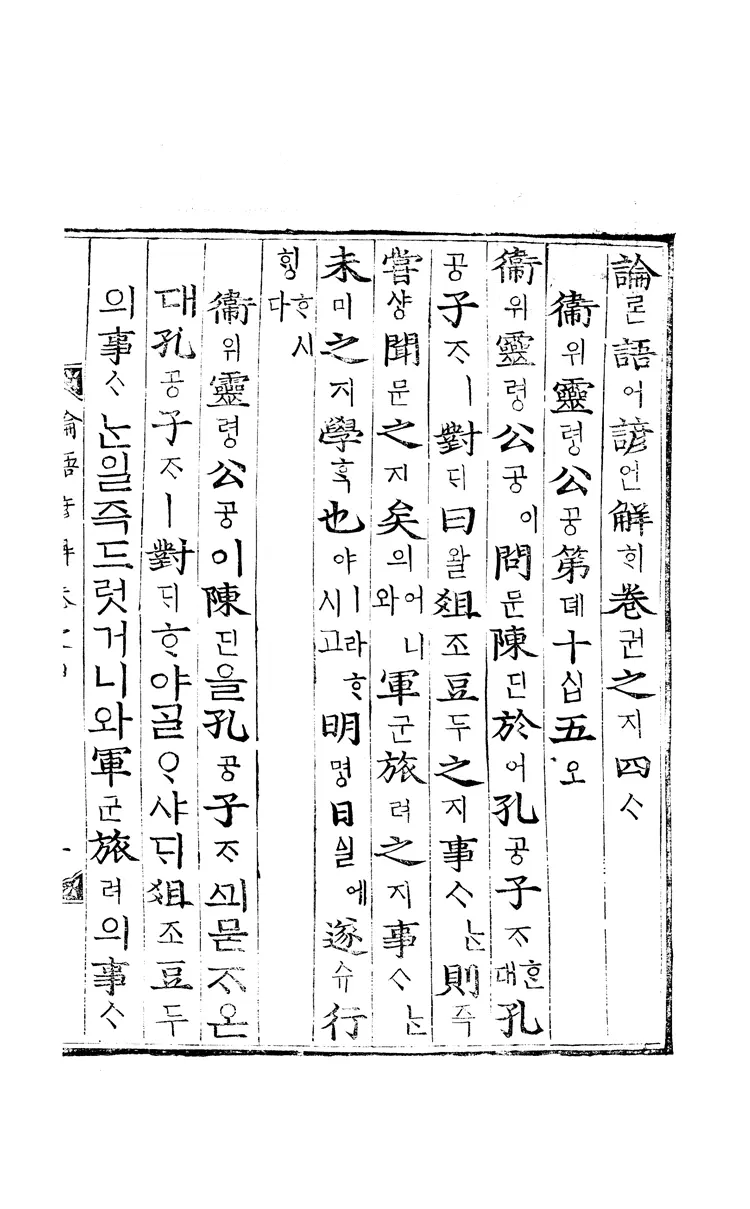 論론語어諺언解ᄒᆡ卷권之지四ᄉᆞ
衞위靈령公공第뎨十십五오
衞위靈령公공이問문陳딘於어孔공子ᄌᆞᄒᆞᆫ대孔
공子ᄌᆞㅣ對ᄃᆡ曰왈俎조豆두之지事ᄉᆞᄂᆞᆫ則즉
甞샹聞문之지矣의어니와軍군旅려之지事ᄉᆞᄂᆞᆫ
未미之지學ᄒᆞᆨ也야ㅣ라ᄒᆞ시고明명日ᅀᅵᆯ에遂슈行
ᄒᆡᆼᄒᆞ시다
衞위靈령公공이陳딘을孔공子ᄌᆞᄭᅴ묻ᄌᆞ온
대孔공子ᄌᆞㅣ對ᄃᆡᄒᆞ야ᄀᆞᆯᄋᆞ샤ᄃᆡ俎조豆두
의事ᄉᆞᄂᆞᆫ일즉드럿거니와軍군旅려의事ᄉᆞ